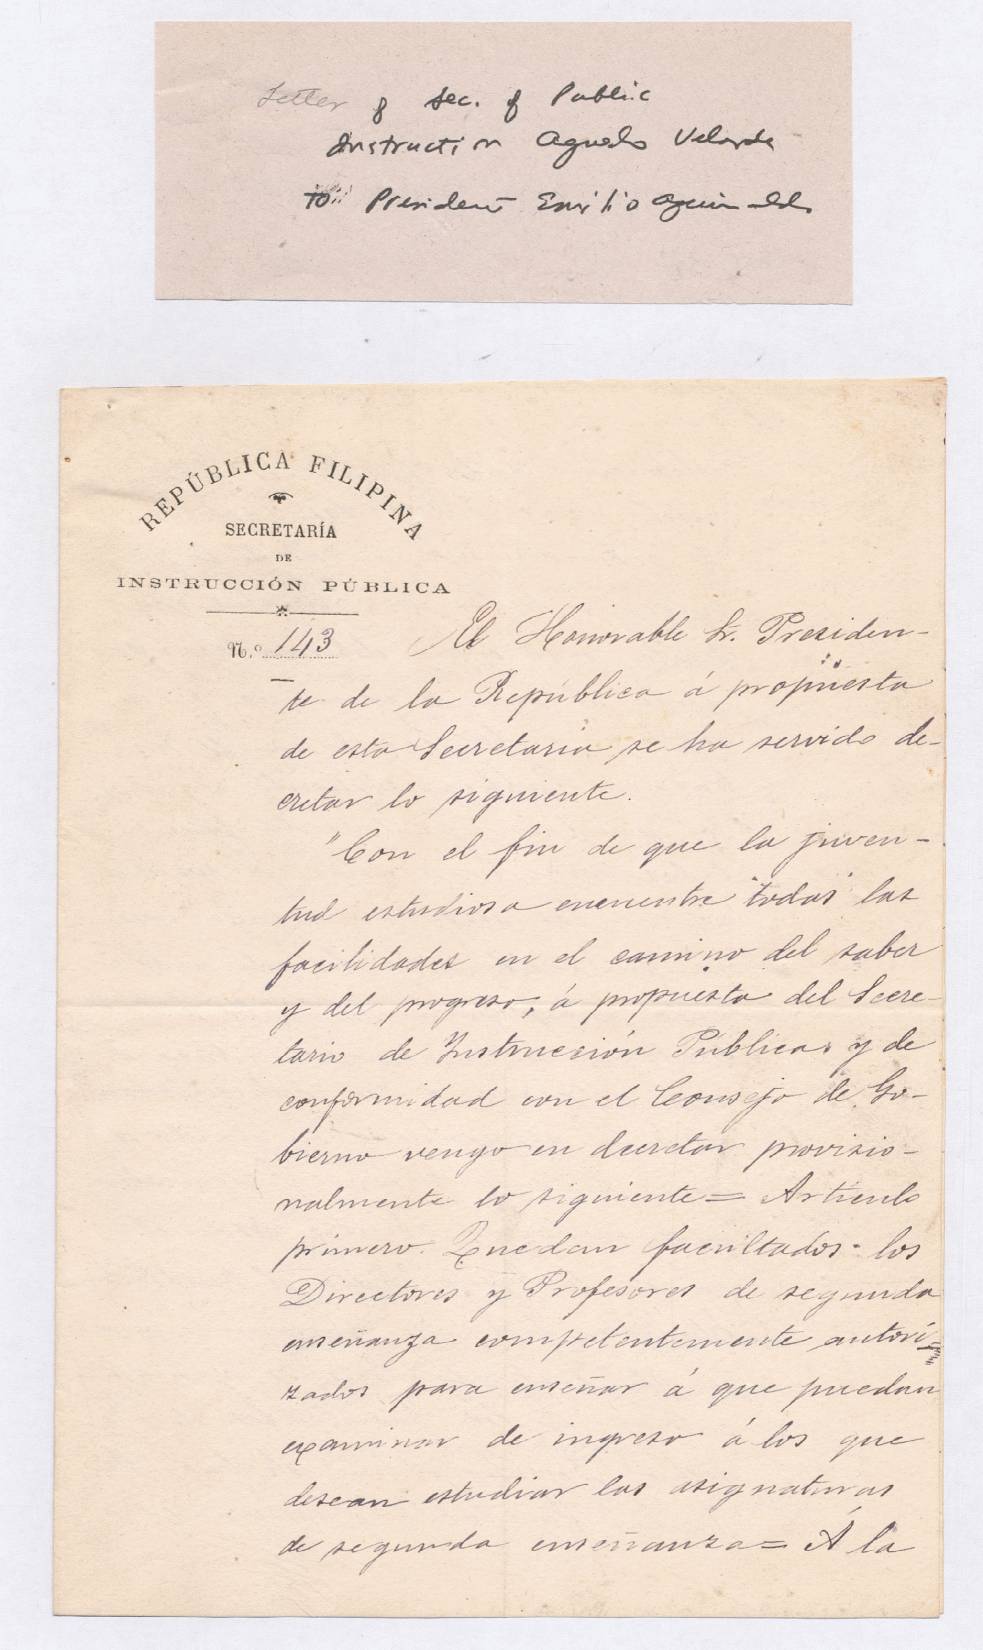 Letter of Sec. of Public
Instruction Aguedo Velarde
to President Emilio Aguinaldo
REPÚBLICA FILIPINA
SECRETARÍA
DE
INSTRUCCIÓN PÚBLICA
N.º 143
El Honorable Sr. Presiden-
te de la República á propuesta
de esta Secretaria se ha servido de-
cretar lo siguiente.
"Con el fin de que la juven-
tud estudiosa encuentre todas las
facilidades en el camino del saber
y del progreso, á propuesta del Secre-
tario de Instrucción Pública y de
conformidad con el Consejo de Go-
bierno vengo en decretar provisio-
nalmente lo siguiente = Artículo
primero. Quedan facultados los
Directores y Profesores de segunda
enseñanza competentemente autori-
zados para enseñar á que puedan
examinar de ingreso á los que
desean estudiar las asignaturas
de segunda enseñanza = Á la